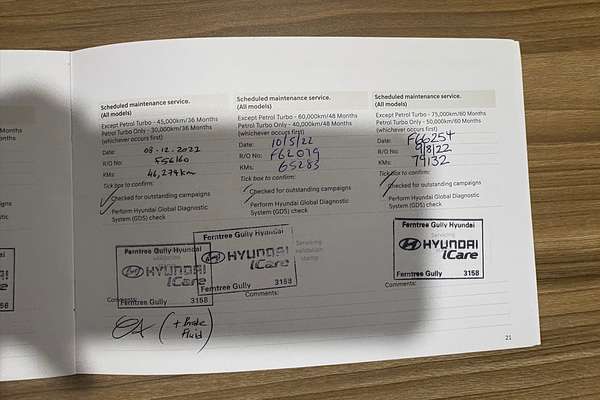 Scheduled maintenance service.
(All models)
Except Petrol Turbo - 45,000km/36 Months
Petrol Turbo Only - 30,000km/36 Months
(whichever occurs first)
Date: 08.12.2022
R/O No: F56160
KMs: 46,279km
Tick box to confirm:
Checked for outstanding campaigns
Perform Hyundai Global Diagnostic
System (GDS) check
Ferntree Gully Hyundai
HYUNDAI
iCare
Ferntree Gully 3158
Comments:
(+ Brake
Fluid)
Scheduled maintenance service.
(All models)
Except Petrol Turbo - 60,000km/48 Months
Petrol Turbo Only - 40,000km/48 Months
(whichever occurs first)
Date: 10/5/22
R/O No: F62079
KMs: 65283
Tick box to confirm:
Checked for outstanding campaigns
Perform Hyundai Global Diagnostic
System (GDS) check
Servicing
validation
stamp
Ferntree Gully Hyundai
HYUNDAI
iCare
Ferntree Gully 3158
Comments:
Scheduled maintenance service.
(All models)
Except Petrol Turbo - 75,000km/60 Months
Petrol Turbo Only - 50,000km/60 Months
(whichever occurs first)
Date: F66254
R/O No: 9/8/22
KMs: 79132
Tick box to confirm:
Checked for outstanding campaigns
Perform Hyundai Global Diagnostic
System (GDS) check
Ferntree Gully Hyundai
Servicing
HYUNDAI
iCare
Ferntree Gully 3158
Comments:
21